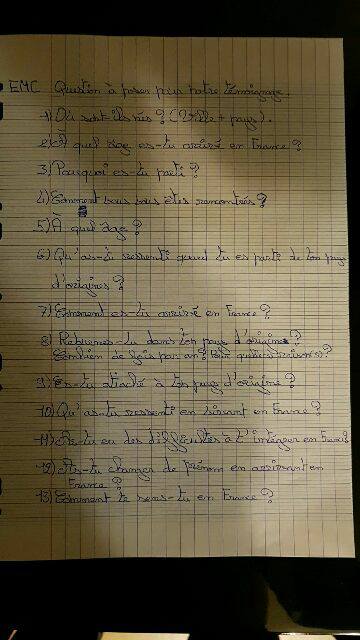 EMC Question à poser pour notre témoignage.
1) Où sont-ils nés ? (Ville + pays).
2) À quel âge es-tu arrivé en France ?
3) Pourquoi es-tu parti ?
4) Comment vous vous êtes rencontrés ?
5) À quel âge ?
6) Qu'as-tu ressenti quand tu es parti de ton pays
d'origines ?
7) Comment es-tu arrivé en France ?
8) Retournes-tu dans ton pays d'origine ?
Combien de fois par an ? Pour quelles raison(s) ?
9) Es-tu attaché à ton pays d'origine ?
10) Qu'as-tu ressenti en vivant en France ?
11) As-tu eu des difficultés à t'intégrer en France
12) As-tu changer de prénom en arrivant en
France ?
13) Comment te sens-tu en France ?